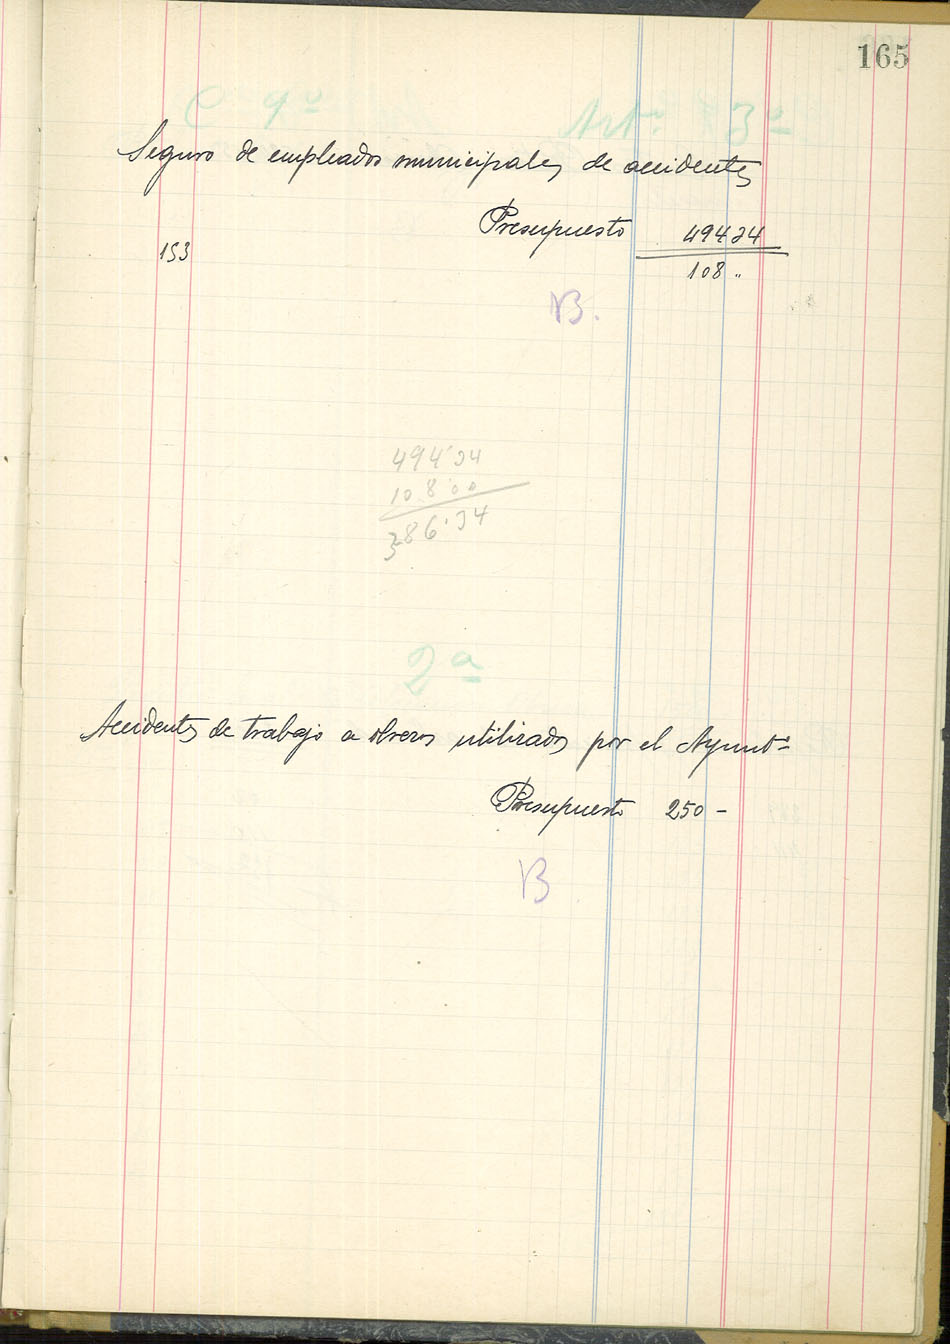 165
C 9º Artº 3º
Seguro de empleados municipales de accidentes
Presupuesto 494 34
153
108 ..
B.
494'34
108'00
386'34
2ª
Accidentes de trabajo a obreros utilizados por el Ayuntº
Presupuesto 250 -
B